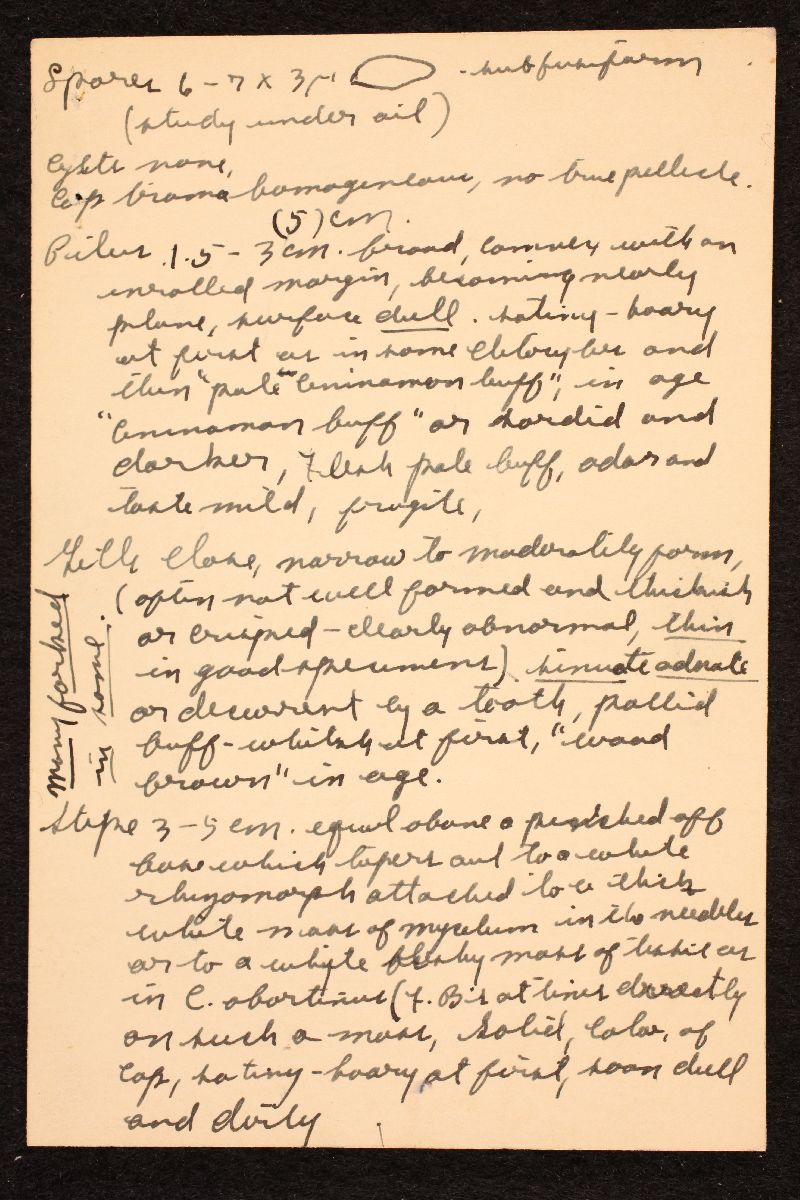 Spores 6-7 x 3μ subfusiform
(study under oil)
Cysts none,
Cap trama homogeneous, no true pellicle.
(5) cm.
Pileus 1.5 - 3 cm. broad, convex with an
enrolled margin, becoming nearly
plane, surface dull. satiny-hoary
at first as in some Clitocybes and
then "pale cinnamon buff", in age
"cinnamon buff" or sordid and
darker, Flesh pale buff, odor and
taste mild, fragile,
Gills close, narrow to moderately
(often not well formed and thickish
or crisped - clearly abnormal, thin
in good specimens). sinuate adnate
or decurrent by a tooth, pallid
buff-whitish at first, "wood
brown" in age.
many forked
in some.
Stipe 3-5 cm. equal above a pinched off
base which tapers out to a white
rhizomorph attached to a thick
white mass of mycelium in the needles
or to a white fleshy mass of tissue as
in C. abortivus (F. B. is at times directly
on such a mass, solid, color of
cap, satiny-hoary at first, soon dull
and dirty